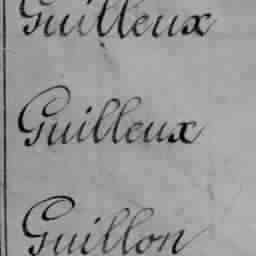 Guilleux
Guilleux
Guillon